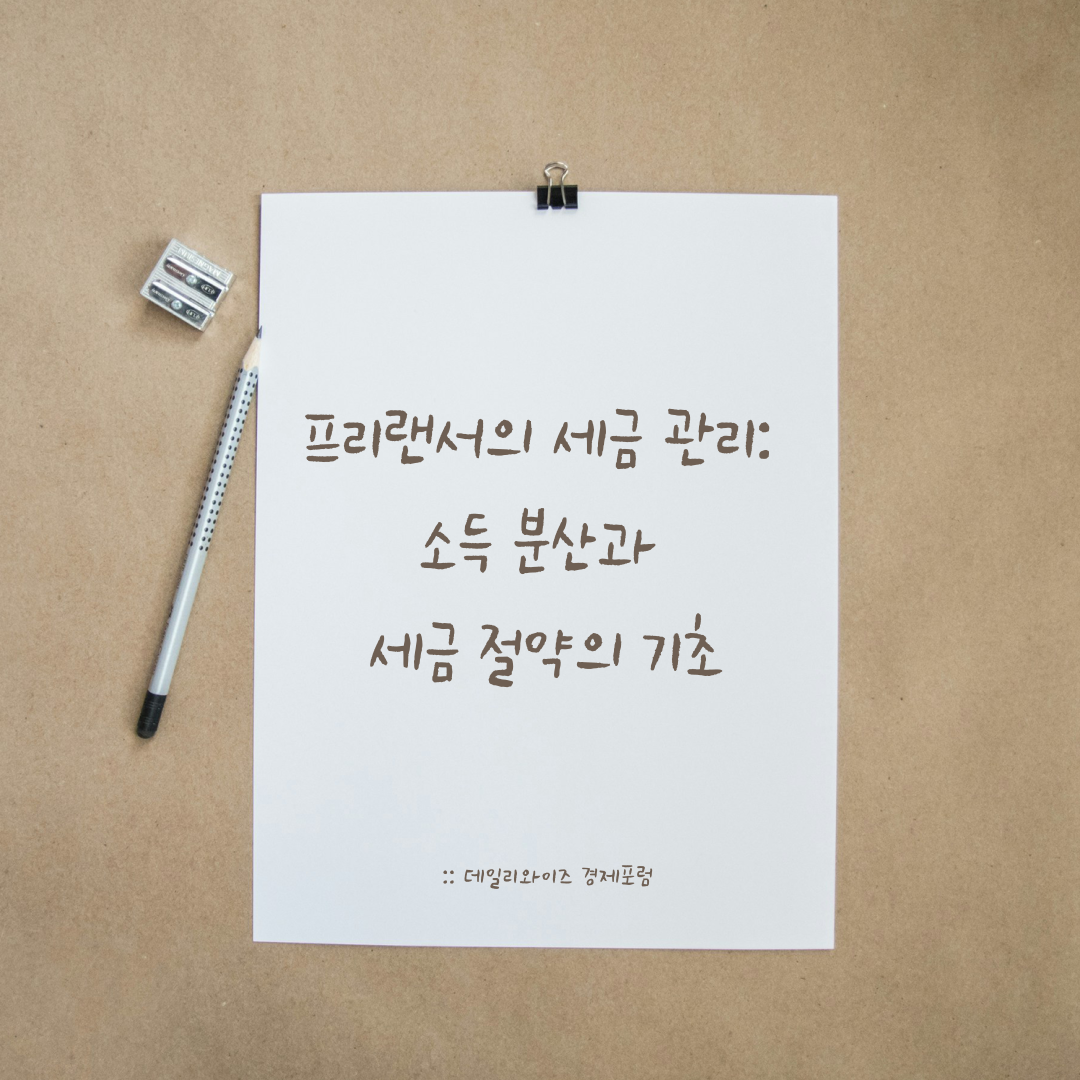 프리랜서의 세금 관리:
소득 분산과
세금 절약의 기초
:: 데일리와이즈 경제포럼